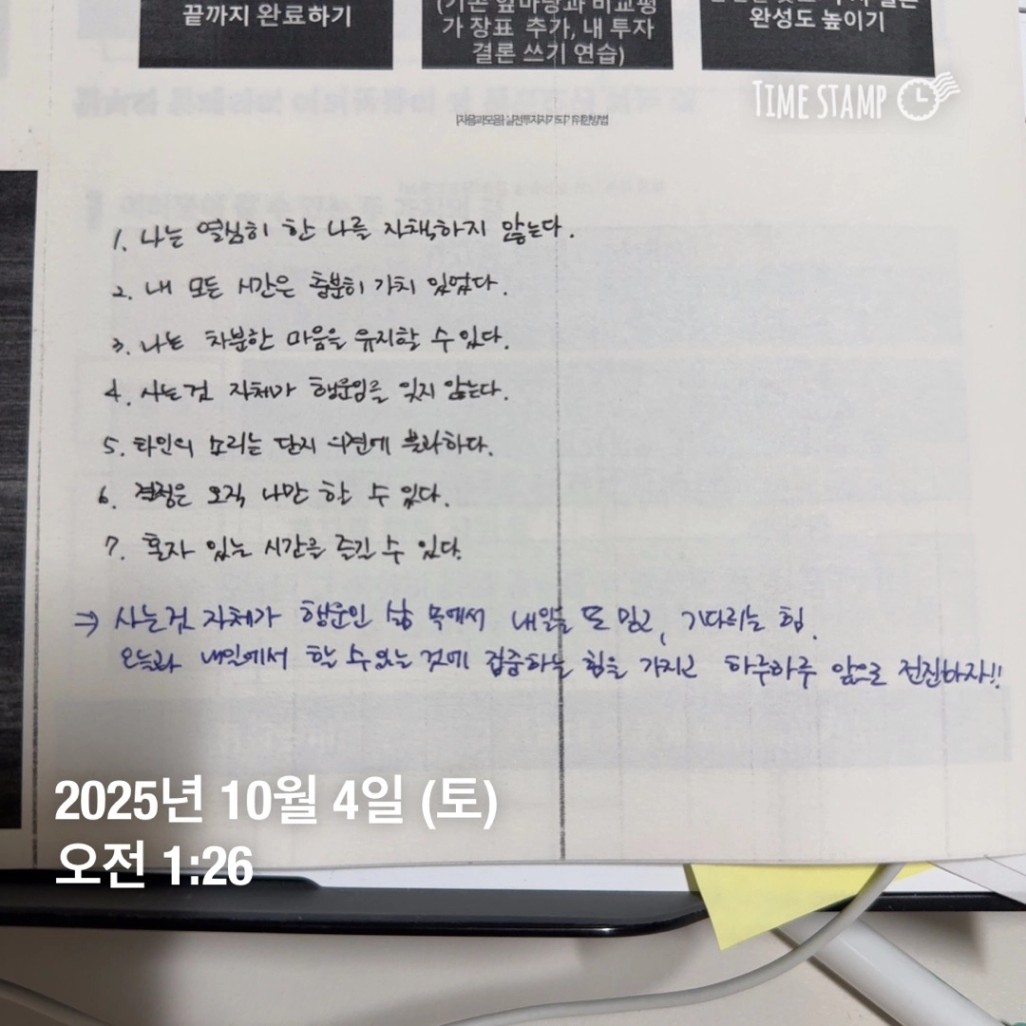 끝까지 완료하기
(기존 앞마당과 비교평
가 장표 추가, 내 투자
결론 쓰기 연습)
완성도 높이기
TIME STAMP
1. 나는 열심히 한 나를 자책하지 않는다.
2. 내 모든 시간은 충분히 가치 있었다.
3. 나는 차분한 마음을 유지할 수 있다.
4. 사는 것 자체가 행운임을 잊지 않는다.
5. 타인의 소리는 단지 의견에 불과하다.
6. 결정은 오직 나만 할 수 있다.
7. 혼자 있는 시간을 즐길 수 있다.
⇒ 사는 것 자체가 행운인 삶 속에서 내일을 또 믿고, 기다리는 힘.
오늘과 내일에서 할 수 있는 것에 집중하는 힘을 가지고 하루하루 앞으로 전진하자!!
2025년 10월 4일 (토)
오전 1:26